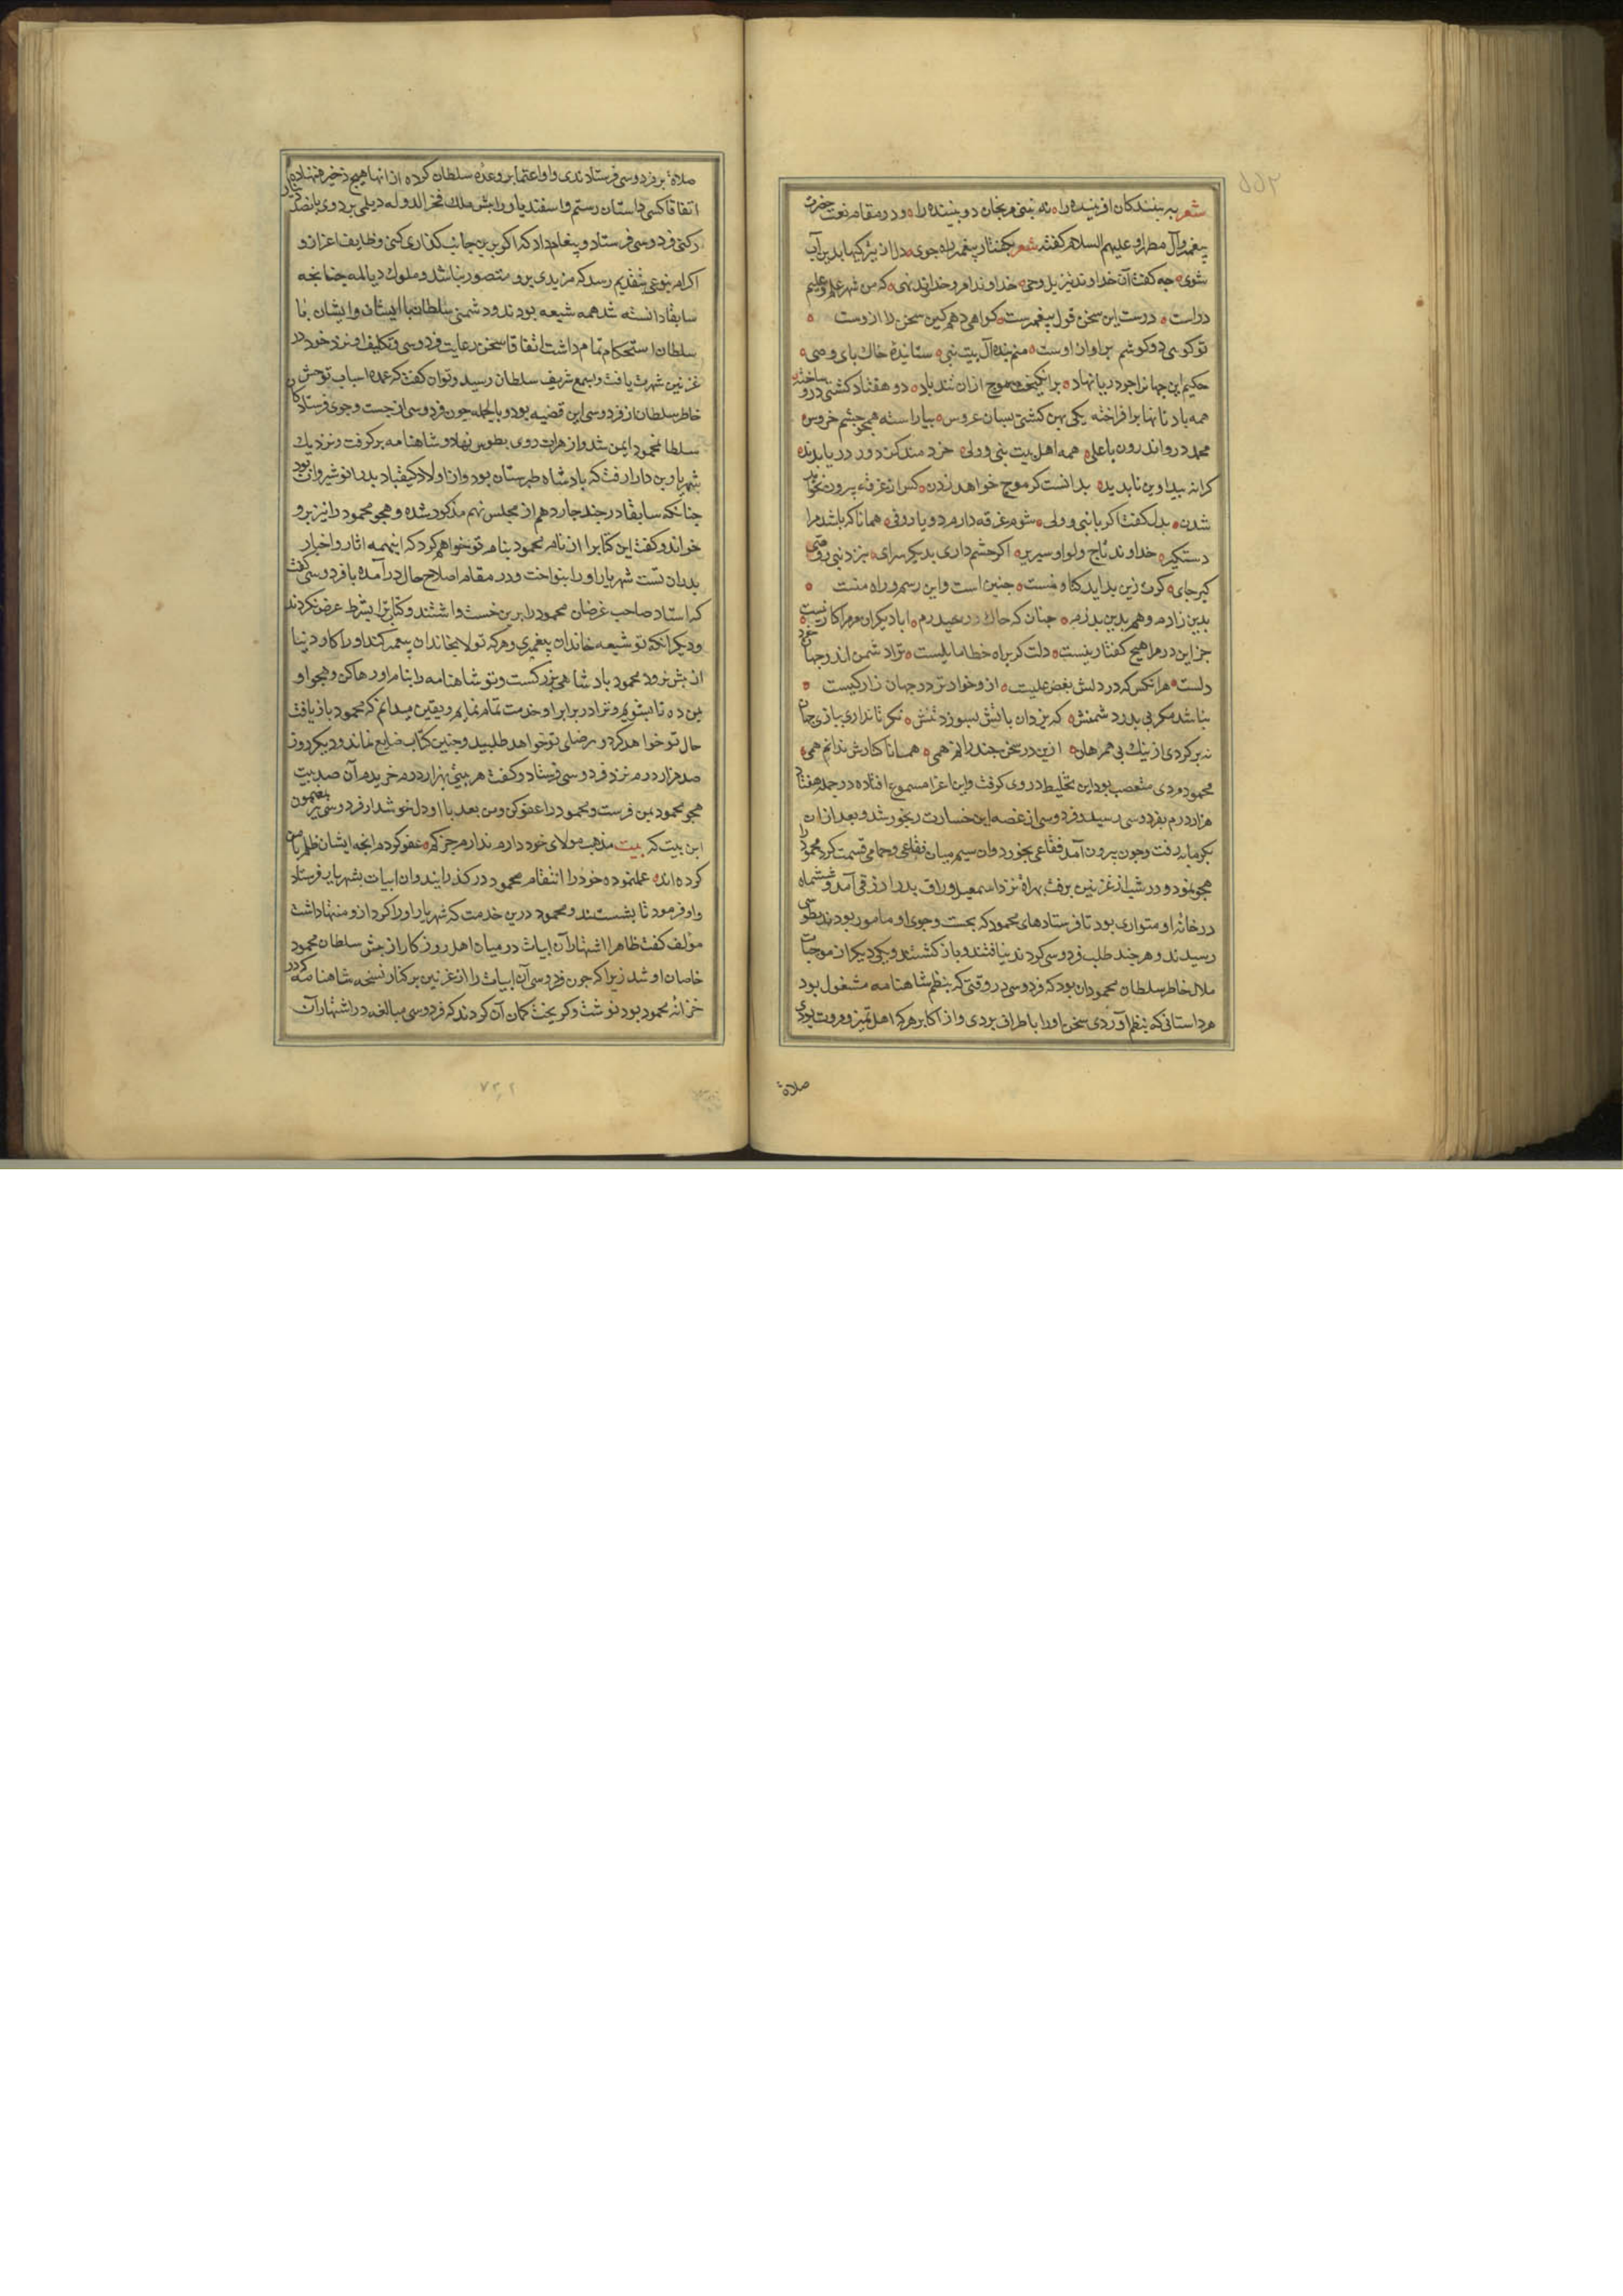 شعر به بینندکان افریننده را نه بینی مرنجان دو بیننده را و در مقام نعت حضرت
پیغمبر وآل مطهر او علیهم السلام کفته شعر بکفتار پیغمبرت راه جوی دل از تیرکیها بدین آب
شوی جه کفت آن خداوند تنزیل و وحی خداوند امر و خداوند نهی که من شهر علمم علیم
در است درست این سخن قول پیغمبرست کواهی دهم کین سخن را ازوست
تو کوی دو کوشم براواز اوست منم بنده آل بیت نبی ستاینده خاك پای وصی
حکیم این جهانرا جو دریا نهاد برانکیخته موج ازان تندباد دو هفتاد کشتی درو ساخته
همه بادبانها برافراخته یکی بهن کشتی بسان عروس بیاراسته همجو جشم خروس
محمد درو اندرون با علی همه اهل بیت نبی و ولی خردمند کز دور دریا بدید
کرانه نه پیدا و بن ناپدید بدانست کو موج خواهد زدن کس از غرقه بیرون نخواهد
شدن بدل کفت اکر با نبی و ولی شوم غرقه دارم دو یار وفی همانا که باشد مرا
دستکیر خداوند تاج و لوا و سریر اکر جشم داری بدیکر سرای بنزد نبی و وصی
کیر جای کرت زین بد آید کناه منست جنین است و این رسم و راه منست
بدین زادم و هم بدین بکذرم جنان که خاك در حیدرم ابا دیکران مرمرا کار نیست
جز این در مرا هیج کفتار نیست دلت کر براه خطا مایلست ترا دشمن اندر جهان خود
دلست هر انکس که در دلش بغض علیست ازو خوارتر در جهان زار کیست
نباشد مکر بی پدر دشمنش که یزدان باتش بسوزد تنش نکر تا نداری ببازی جهان
نه برکردی از نیك پی همرهان ازین در سخن جند رانم همی همانا کنارش ندانم همی
محمود مردی متعصب بود این تخلیط در وی کرفت و این اغرا مسموع افتاده در جمله هفتاد
هزار درم بفردوسی رسید و فردوسی از غصه این خسارت رنجور شد و بعد از ان
بکرمابه رفت و جون بیرون آمد فقاعی بخورد و ان سیم میان فقاعی و حمامی قسمت کرد و محمود را
هجو نمود و در شب از غزنین برفت بهراة نزد اسمعیل وراق پدر ازرقی آمد و ششماه
در خانه او متواری بود تا فرستادهای محمود که بجست و جوی او مامور بودند بطوس
رسیدند و هر جند طلب فردوسی کردند نیافتند و باز کشتند و یکی دیکر از موجبات
ملال خاطر سلطان محمود ان بود که فردوسی در وقتی که بنظم شاهنامه مشغول بود
هر داستانی که بنظم آوردی سخن او را باطراف بردی و از اکابر هر که اهل تمیز و مروت بودی
صلاة
صلاة بر فردوسی فرستادندی و او اعتماد بر وعده سلطان کرده از انها هیج ذخیره ننهاد
اتفاقا کسی داستان رستم و اسفندیار را بیش ملك فخر الدوله دیلمی برد وی پانصد
رکنی فردوسی فرستاد و پیغام داد که اکر برین جانب کذاری کنی وظایف اعزاز و
اکرام بنوعی بتقدیم رسد که مزیدی برو متصور نباشد و ملوك دیالمه جنانجه
سابقا دانسته شد همه شیعه بودند و دشمنی سلطان با ایشان و ایشان با
سلطان استحکام تمام داشت اتفاقا سخن رعایت فردوسی و تکلیف او نزد خود در
غزنین شهرت یافت و بسمع شریف سلطان رسید و توان کفت که عمده اسباب توحش
خاطر سلطان از فردوسی این قضیه بود و بالجمله جون فردوسی از جست و جوی فرستادکان
سلطان محمود ایمن شد و از هرات روی بطوس نهاد و شاهنامه برکرفت و نزدیك
شهریار بن دارا رفت که پادشاه طبرستان بود و از اولاد کیقباد پدر انوشیروان بود
جنانکه سابقا در جند جاردهم از مجلس نهم مذکور شده و هجو محمود را نیز برو
خواند و کفت این کتابرا از نام محمود بنام تو خواهم کرد که اینهمه اثار و اخبار
پدران تست شهریار او را بنواخت و در مقام اصلاح حال درآمده با فردوسی کفت
که استاد صاحب غرضان محمود را برین خست داشتند و کتاب ترا بشرط عرض نکردند
و دیکر انکه تو شیعه خاندان پیغمبری و هرکه تولا بخاندان پیغمبر کند او را کار دنیا
از پیش نرود محمود پادشاهی بزرکست و تو شاهنامه را بنام او رها کن و هجو او
بمن ده تا بشویم و ترا در برابر او خدمت تمام نمایم و یقین میدانم که محمود باز یافت
حال تو خواهد کرد و رضای تو خواهد طلبید و جنین کتاب ضایع نماند و دیکر روز
صد هزار درم نزد فردوسی فرستاد و کفت هر بیتی بهزار درم خریدم آن صد بیت
هجو محمود بمن فرست و محمود را عفو کن و من بعد با او دل خوش دار فردوسی بمضمون
این بیت که بیت مذهب مولای خود دارم ندارم جز کرم عفو کردم انجه ایشان ظلم با من
کرده اند عمل نموده خود را انتقام محمود درکذرانید و ان ابیات بشهریار فرستاد
و او فرمود تا بشستند و محمود درین خدمت که شهریار او را کرد ازو منتها داشت
مؤلف کفت ظاهرا اشتهار آن ابیات در میان اهل روزکار از پیش سلطان محمود
خاصان او شد زیرا که جون فردوسی آن ابیات را از غزنین بر کنار نسخه شاهنامه که در
خزانه محمود بود نوشت و کریخت کمان آن کردند که فردوسی مبالغه در اشتهار آن